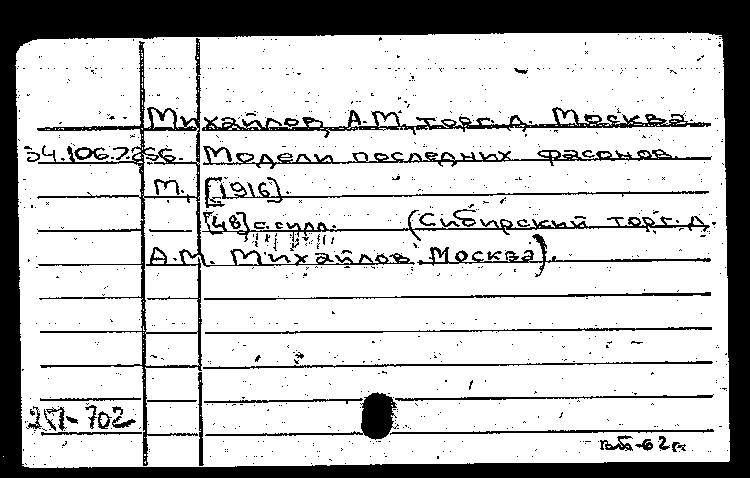 Михайлов, А.М., торг. д. Москва.
34.106.7.256. Модели последних фасонов.
М., [1916].
[48] с. илл. (Сибирский торг. д.
А.М. Михайлов, Москва).
251-702